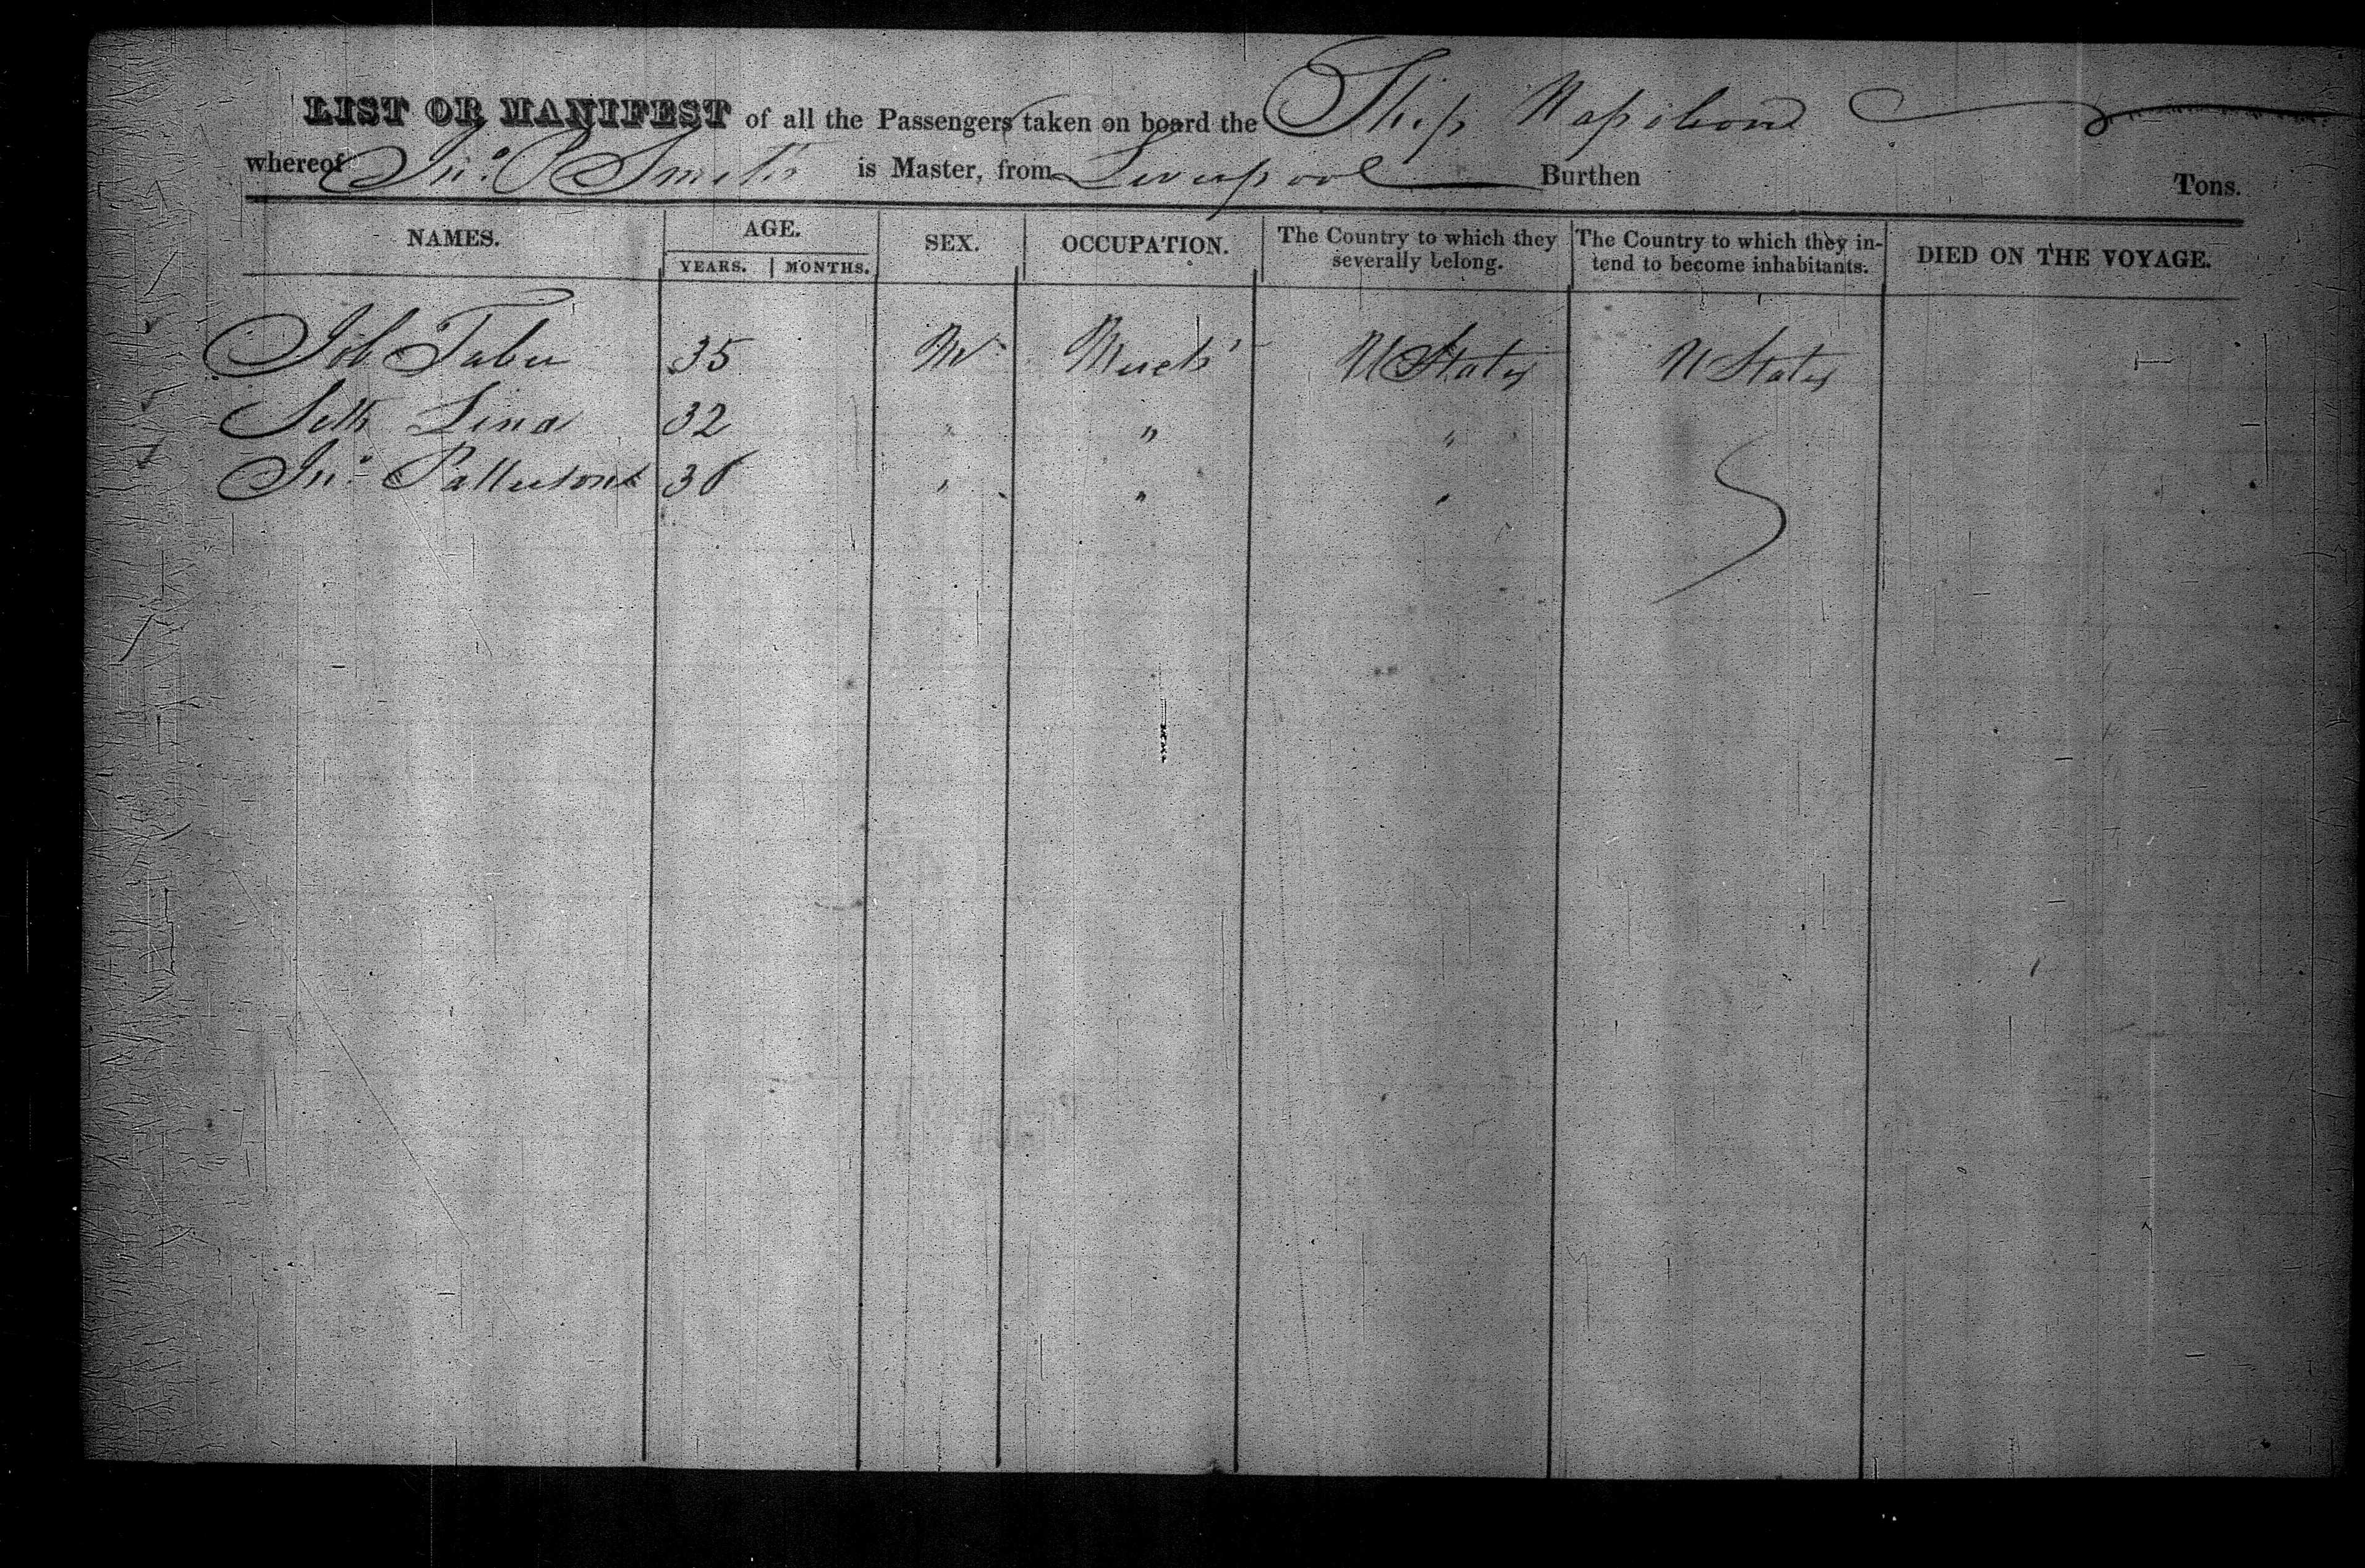 LIST OR MANIFEST of all the Passengers taken on board the Ship Napoleon
whereof Jno. P Smith is Master, from Liverpool Burthen Tons.
NAMES. AGE. SEX. OCCUPATION. The Country to which they severally belong. The Country to which they intend to become inhabitants. DIED ON THE VOYAGE.
YEARS. MONTHS.
Job Taber 35 M Merch't U States U States
Seth 32 " " "
Jno. 30 " " "